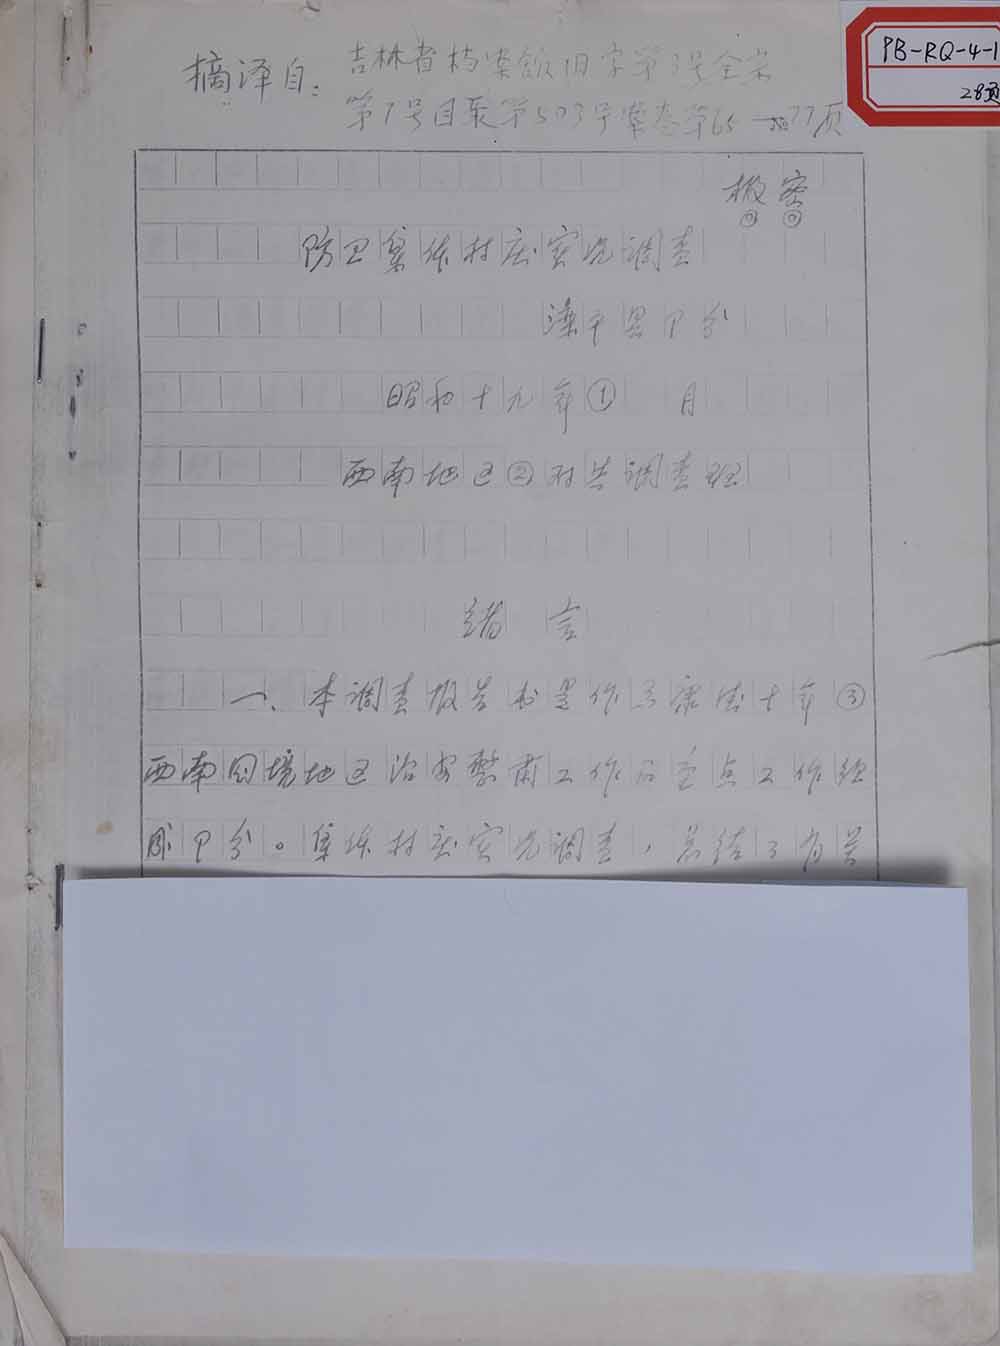 PB-RQ-4-1
28页
摘译自：吉林省档案馆旧字第3号全宗
第7号目录第503号案卷第65—77页
极密
防卫集体村庄实况调查
滦平县部分
昭和十九年① 月
西南地区②对共调查班
绪 言
一、本调查报告书是作为康德十年③
西南国境地区治安整肃工作的重点工作组
成部分。集体村庄实况调查，总结了有关